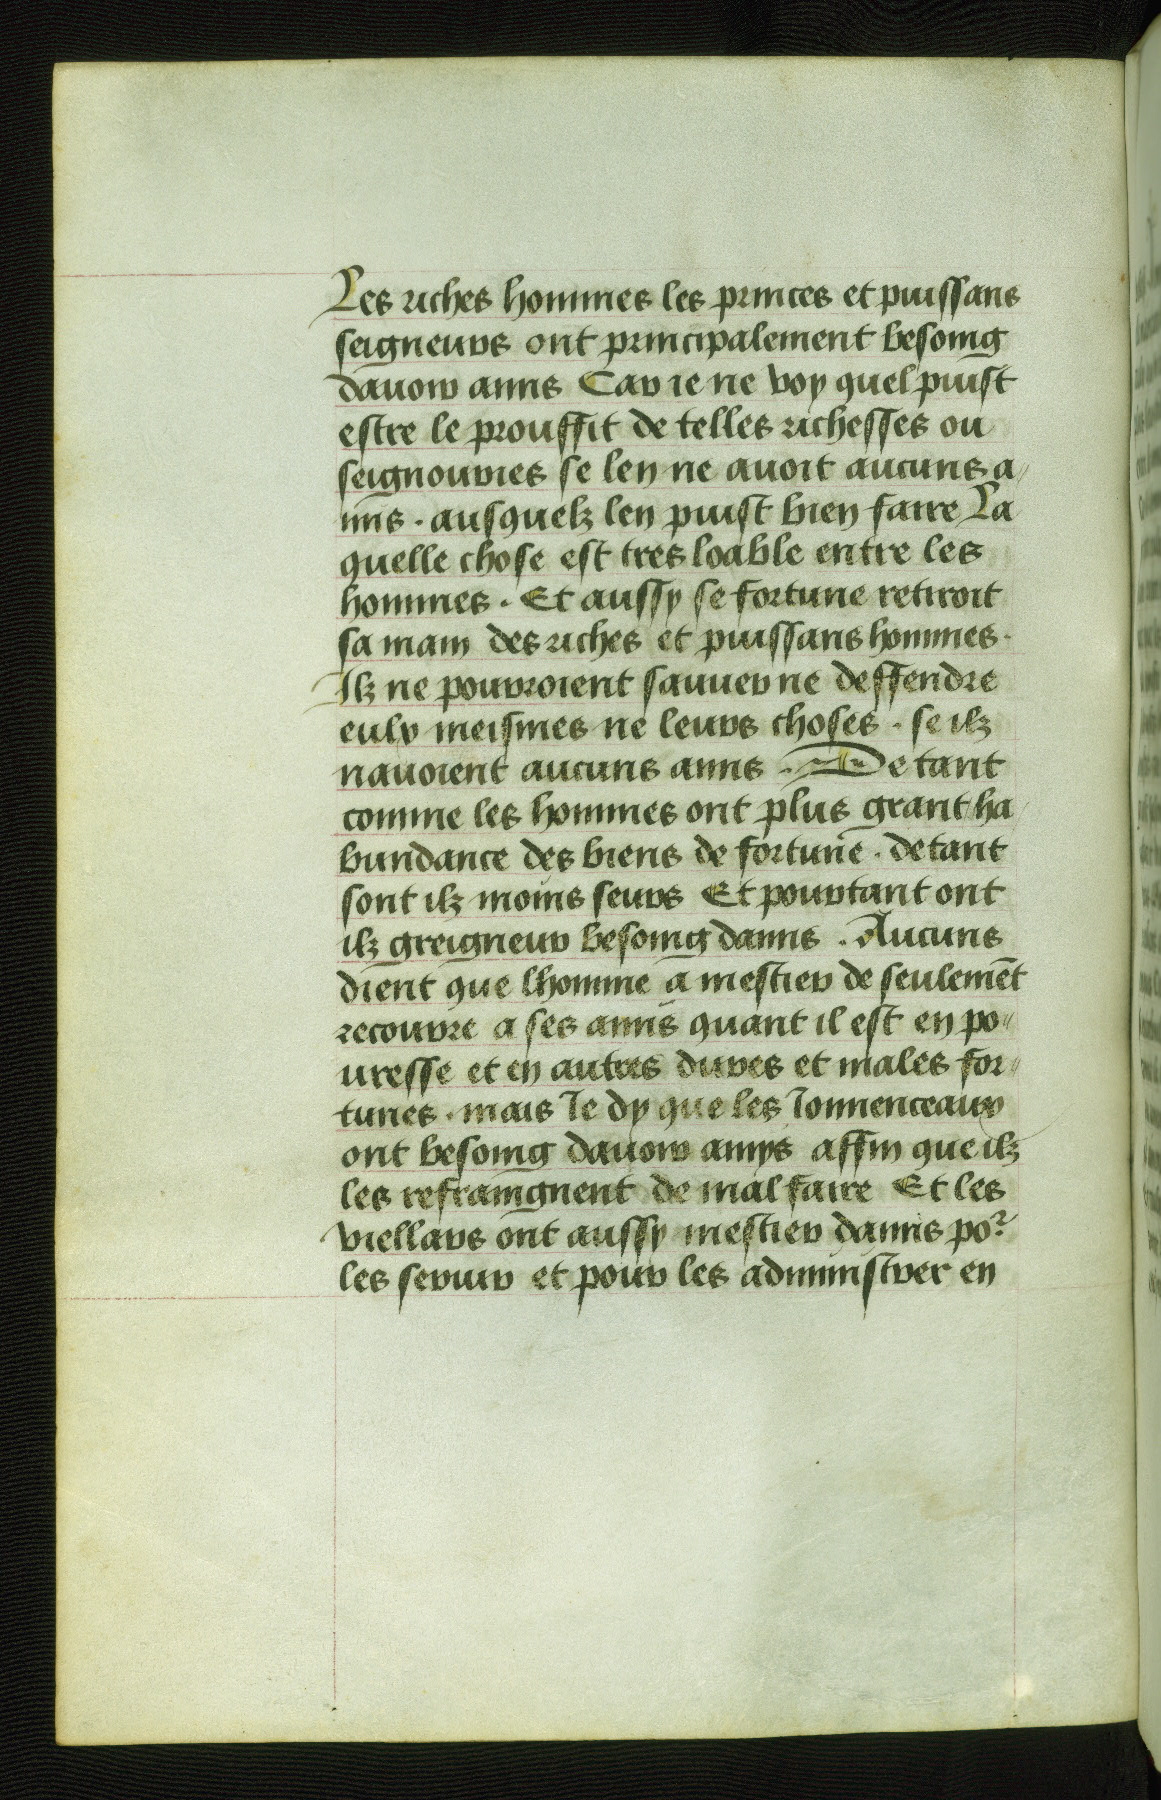 Les riches hommes les princes et puissans
seigneurs ont principalement besoing
dauoir amis Car ie ne voy quel puist
estre le prouffit de telles richesses ou
seignouries se len ne auoit aucuns a〃
mis . ausquelz len puist bien faire La
quelle chose est tres loable entre les
hommes . Et aussy se fortune retiroit
sa main des riches et puissans hommes .
Ilz ne pourroient sauuer ne deffendre
eulx meismes ne leurs choses . se ilz
nauoient aucuns amis . De tant
comme les hommes ont plus grant ha〃
bundance des biens de fortune . de tant
sont ilz moins seurs Et pourtant ont
ilz greigneur besoing damis . Aucuns
dient que lhomme a mestier de seulemēt
recouvre a ses amis quant il est en po〃
uresse et en autres dures et males for〃
tunes . mais Ie dy que les Ionnenceaux
ont besoing dauoir amys affin que ilz
les refraingnent de mal faire Et les
viellars ont aussy mestier damis poᷣ
les seruir et pour les administrer en